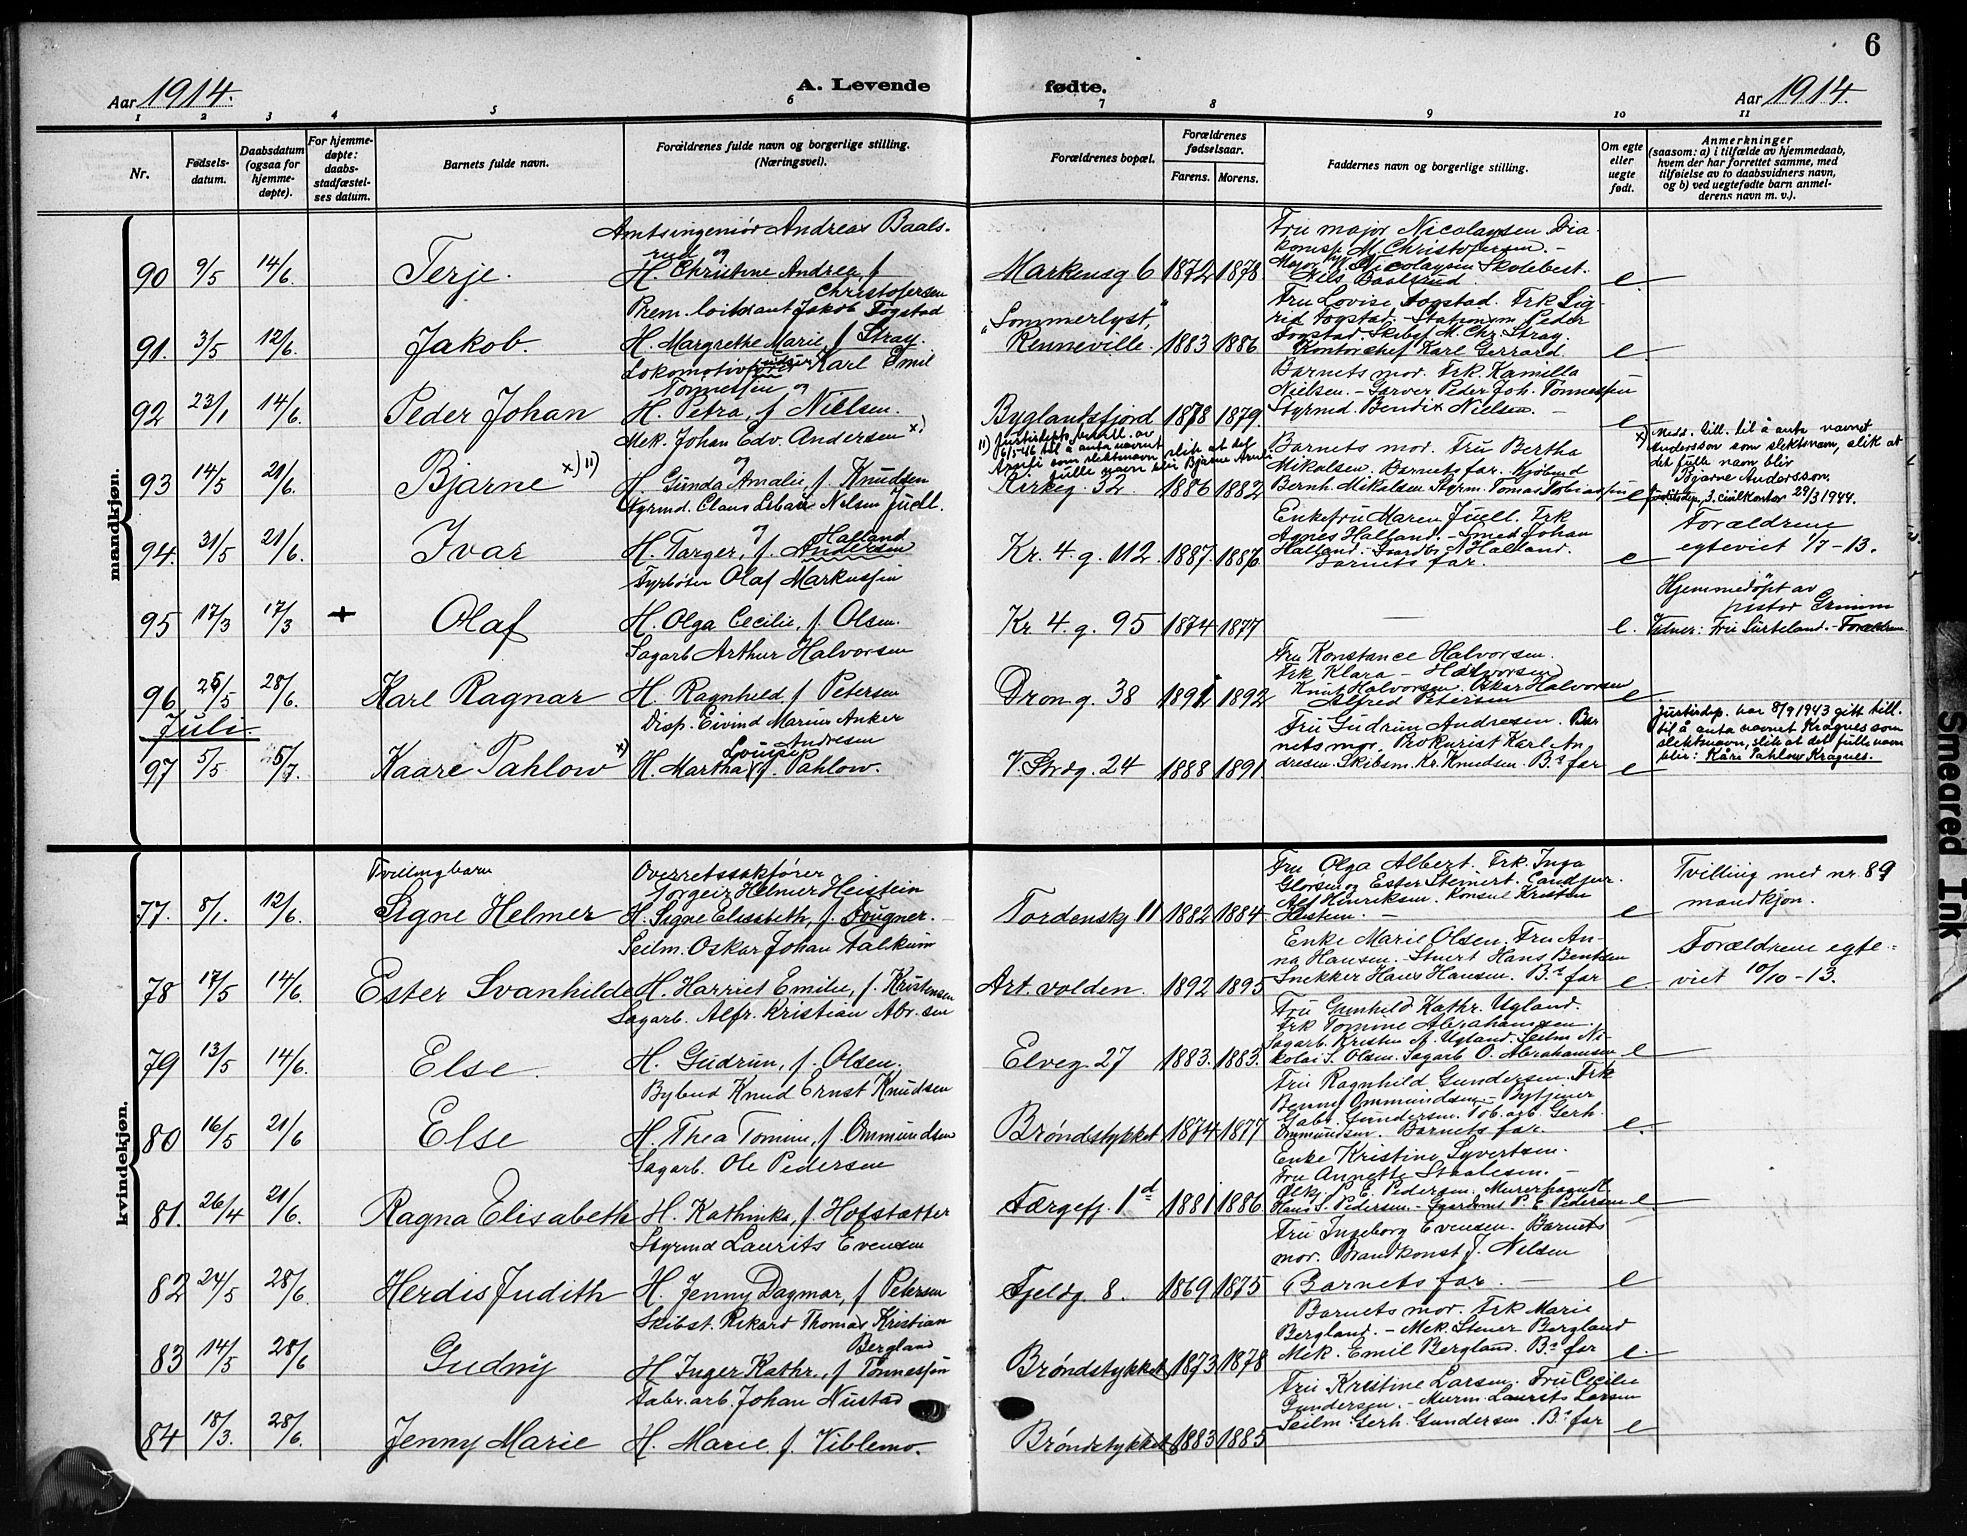 6
Aar 1914.
A. Levende fødte.
Aar 1914.
1 2 3 4 5 6 7 8 9 10 11
Nr.
Fødsels-
datum.
Daabsdatum
(ogsaa for
hjemme-
døpte).
For hjemme-
døpte:
daabs-
stadfæstel-
ses datum.
Barnets fulde navn.
Forældrenes fulde navn og borgerlige stilling.
(Næringsvei).
Forældrenes bopæl.
Forældrenes
fødselsaar.
Farens. Morens.
Faddernes navn og borgerlige stilling.
Om egte
eller
uegte
født.
Anmerkninger
(saasom: a) i tilfælde av hjemmedaab,
hvem der har forrettet samme, med
tilføielse av to daabsvidners navn,
og b) ved uegtefødte barn anmel-
derens navn m. v.).
mandkjøn.
90 9/5 14/6. Terje.
Amtsingeniør Andreas Baals-
rud og
H. Christine Andrea f
Christofersen
Markensg 6 1872 1878
Fru major Nicolaysen Dia-
konisse M Christofersen –
Major Nicolaysen Skolebest.
Nils Baalsrud.
e.
91. 3/5 12/6. Jakob.
Prem. løitnant Jakob Fogstad
H. Margrethe Marie, f Stray.
"Sommerlyst,"
Renneville. 1883 1886
Fru Lovise Fogstad. Frk Sig-
rid Fogstad. – Stationsm Peder
Fogstad. Skibsf. M. Chr. Stray.
Kontorchef Karl Gerrard
e
92 23/1 14/6 Peder Johan
Karl Emil
Tønnessen og
H. Petra, f Nielsen.
Byglandsfjord 1878 1879.
Barnets mor. Frk. Kamilla
Nielsen. – Garver Peder Joh. Tønnessen
Styrmd. Bendix Nielsen. –
e
93 14/5 21/6. Bjarne x) 11)
Mek. Johan Edv. Andersen x)
og
H. Gunda Amalie, f. Knudsen
11) Justisdepts. bevill. av
6/5-46 til å anta navnet
Arnfi som slektsnavn slik at det
fulle navn blir Bjarne Arnfi
Kirkeg. 32. 1886 1882
Barnets mor. Fru Bertha
Mikalsen. Barnets far. Kjøbmd
Bernh. Mikalsen Styrm. Tomas Tobiassen
e
x) Medd. till. til å anta navnet
Anderssøn som slektsnavn, slik at
det fulle navn blir
Bjarne Anderssøn.
Justitsdep. 3. civilkontor 29/3 1944.
94. 31/5 21/6. Ivar
Styrmd. Claus Urban Nilsen Juell.
og Halland
H. Targer, f. Andersen
Kr. 4. g. 112. 1887. 1886.
Enkefru Maren Juell. Frk
Agnes Halland. – Smed Johan
Halland. – Gaardbr. N Halland.
Barnets far.
e
Forældrene
egteviet 1/7 – 13.
95 17/3 17/3 + Olaf
Fyrbøter Olaf Markussen
H. Olga Cecilie, f Olsen.
Kr. 4. g. 95 1874 1877
—
e.
Hjemmedøpt av
pastor Grimm
Vidner: Fru Surteland. – Forældrene
96 25/5 28/6. Karl Ragnar
Sagarb. Arthur Halvorsen
H. Ragnhild, f Petersen
Dron g. 38 1891 1892
Fru Konstance Halvorsen.
Frk Klara – Halvorsen
Knut Halvorsen. Oskar Halvorsen
Alfred Petersen
e
Juli.
97 5/5 5/7. Kaare Pahlow x)
Disp. Eivind Marius Anker
Andresen
Louise
H. Martha f. Pahlow.
V. Strdg. 24 1888 1891
Fru Gudrun Andresen. Bar-
nets mor. Prokurist Karl An-
dresen. Skibsm. Kr. Knudsen. B.s far
e
Justisdep. har 8/9 1943 gitt till.
til å anta navnet Kragnes som
slektsnavn, slik at det fulle navn
blir: Kåre Pahlow Kragnes.
kvindekjøn.
77. 8/1. 12/6. Tvillingbarn
Signe Helmer
Overretssakfører
Torgeir Helmer Heistein
H. Signe Elisabeth, f. Dougner.
Tordenskg. 11 1882 1884
Fru Olga Albert. Frk. Inga
Glorsen og Ester Steinert. Candjur.
Alf Henriksen. Konsul Kristen
Heistein. –
e
Tvilling med nr. 89
mandkjøn.
78 17/5 14/6. Ester Svanhilde
Seilm. Oskar Johan Falkum
H. Harriet Emilie, f. Kristensen
Art. volden. 1892 1895
Enke Marie Olsen. Fru An-
na Hansen. – Stuert Hans Bentsen
Snekker Hans Hansen. B.s far
e.
Forældrene egte-
viet 10/10 – 13.
79 13/5 14/6. Else.
Sagarb. Alfr. Kristian Abr. sen
H. Gudrun, f. Olsen.
Elveg. 27 1883. 1883.
Fru Gunhild Kathr. Ugland.
Frk Tomine Abrahamsen.
Sagarb. Kristen A. Ugland. Seilm Ni-
kolai S. Olsen. Sagarb O. Abrahamsen
e
80 16/5 21/6 Else
Bybud Knud Ernst Knudsen
H. Thea Tomine, f Ommundsen
Brøndstykket 1874 1877
Fru Ragnhild Gundersen. Frk
Benny Ommundsen – Bytjener
Gabr. Gundersen. Tob. arb. Gerh.
Ommundsen. Barnets far.
e.
81. 26/4 21/6. Ragna Elisabeth
Sagarb. Ole Pedersen
H. Kathinka, f. Hofstætter
Færgefj. 1d 1881 1886.
Enke Kristine Syvertsen.
Fru Annette Staalesen. –
P. E. Pedersen. Murerhaandl.
Hans S. Pedersen. – P. E. Pedersen
e.
82 24/5 28/6. Herdis Judith
Styrmd Laurits Evensen
H. Jenny Dagmar, f Petersen
Fjeldg. 8. 1869 1875
Fru Ingeborg Evensen. Barnets
mor. Brandkonst J. Nilsen
Barnets far. –
e
83 14/5 28/6 Gudny
Skibst. Rikard Thomas Kristian
Bergland
H Inger Kathr., f Tønnessen
Brøndstykket 1873 1878
Barnets mor. Frk Marie
Bergland. – Mek. Stener Bergland
Mek. Emil Bergland. B.s far
e.
84 18/3. 28/6. Jenny Marie
Fabr. arb. Johan Nustad
H. Marie, f. Viblemo.
Brøndstykket 1883 1885
Fru Kristine Larsen. Fru Cecilie
Gundersen. – Murm. Laurits Larsen
Seilm. Gerh. Gundersen. B.s far
e
Smeared Ink